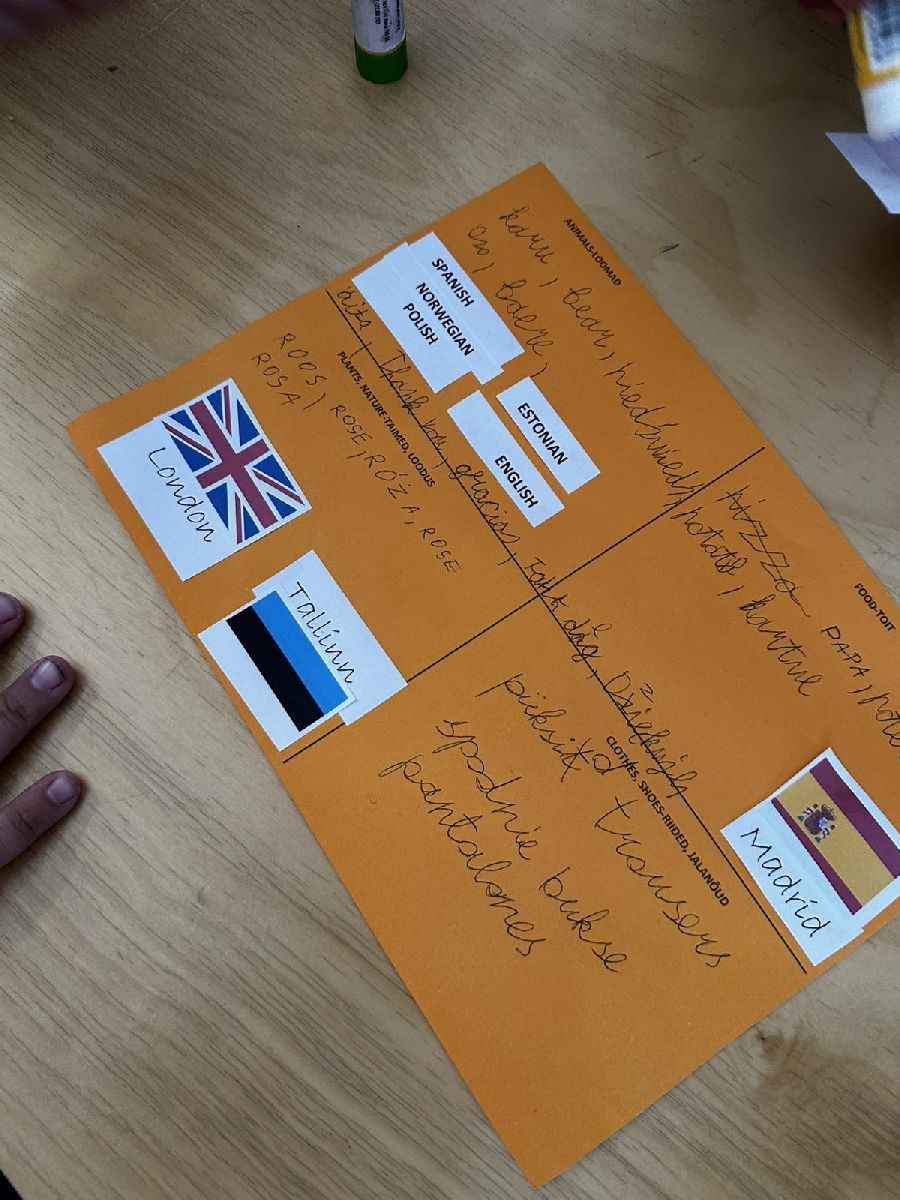 ANIMALS-LOOMAD
karu, bear, niedźwiedź
baere,
SPANISH
NORWEGIAN
POLISH
ESTONIAN
ENGLISH
FOOD-TOIT
pizza
PAPA,
potato, kartul
Thank you, gracias, Takk
PLANTS, NATURE-TAIMED, LOODUS
ROOS, ROSE, RÓŻA, ROSE
ROSA
London
Tallinn
CLOTHES, SHOES-RIIDED, JALANÕUD
püksid trousers
spodnie bukse
pantalones
Madrid